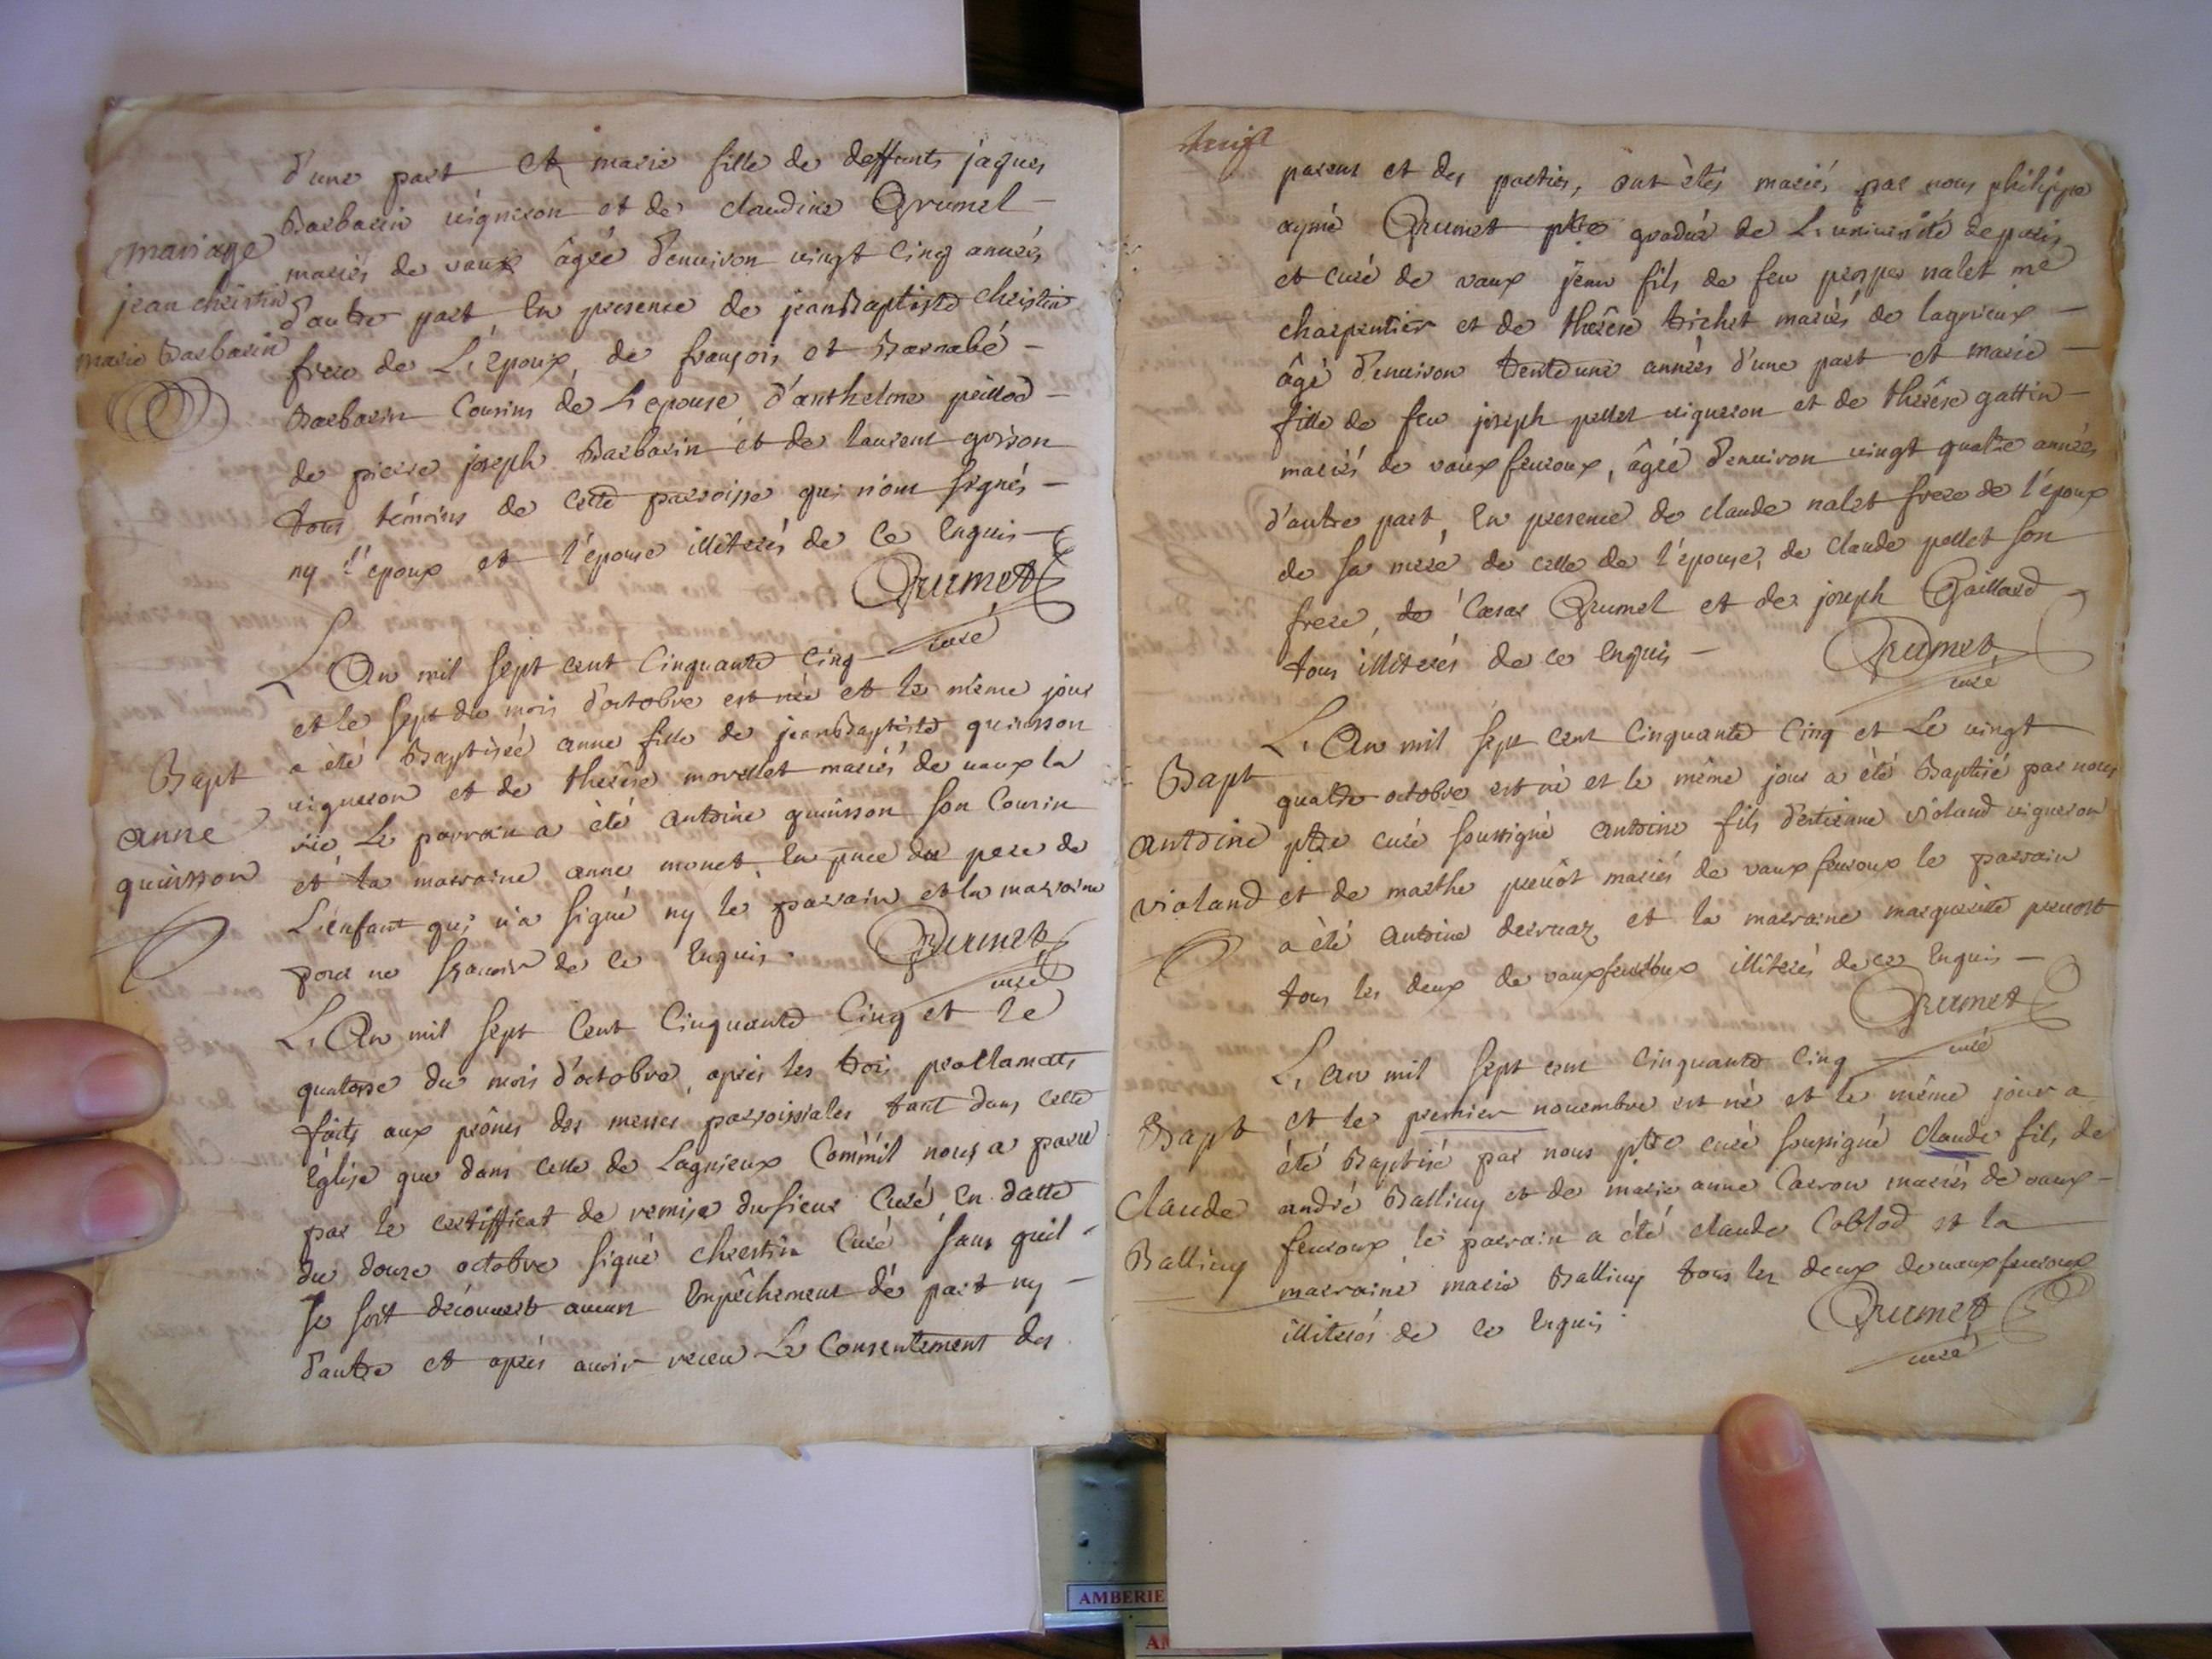 d'une part et marie fille de deffunts jaques
Barbarin vigneron et de claudine Grumel
mariés de vaux âgée d'environ vingt cinq années
d'autre part en presence de jeanBaptiste christin
frere de L'époux, de françois et Barnabé
Barbarin Cousins de L'epouse, d'anthelme peillod
de pierre joseph Barbarin et de laurent grisson
tous témoins de cette parroisse qui n'ont signés
ny l'époux et l'épouse illiterés de ce enquis
Grumet
curé
mariage
jean christin
marie Barbarin
L'An mil sept cent Cinquante cinq
et le sept du mois d'octobre est née et le même jour
a été Baptisée anne fille de jeanBaptiste quinsson
vigneron et de therese morellet mariés de vaux la
vie Le parrain a été antoine quinsson son Cousin
et la marraine anne monet, en pnce du pere de
L'enfant qui n'a signé ny le parrain et la marraine
pour ne sçavoir de ce enquis
Grumet
curé
Bapt
anne
quinsson
L'An mil sept Cent Cinquante Cinq et le
quatorse du mois d'octobre, apres les trois proclamats
faits aux prônes des messes parroissiales tant dans cette
Eglise que dans celle de Lagnieux Comm'il nous a paru
par le certifficat de remise du sieur Curé en datte
du douze octobre signé chrestin Curé sans qu'il
se soit découvert aucun Empêchement de part ny
d'autre et aprés avoir receu Le Consentement des
parens et des parties, ont étés mariés par nous philippe
aymé Grumet ptre gradué de L'université de paris
et curé de vaux jean fils de feu prosper nalet me
charpentier et de thérèse trichet mariés de lagnieux
âgé d'environ trente une années d'une part et marie
fille de feu joseph pellet vigneron et de thérèse gattin
mariés de vaux fevroux, âgée d'environ vingt quatre années
d'autre part, En presence de claude nalet frere de l'époux
de sa mere de celle de l'épouse, de claude pellet son
frere, de Cæsar Grumel et de joseph Gaillard
tous illiterés de ce enquis
Grumet
curé
L'An mil sept cent Cinquante Cinq et Le vingt
quatre octobre est né et le même jour a été Baptisé par nous
ptre curé soussigné antoine fils d'estienne violand vigneron
et de marthe prevôt mariés de vaux fevroux le parrain
a été antoine derruaz et la marraine marguerite prevost
tous les deux de vauxfevroux illiterés de ce enquis
Grumet
curé
Bapt
antoine
violand
L'an mil sept cent Cinquante Cinq
et le premier novembre est né et le même jour a
été Baptisé par nous ptre curé soussigné claude fils de
andré Balliuy et de marie anne Carron mariés de vaux-
fevroux, le parrain a été claude Coblod et la
marraine marie Balliuy tous les deux de vaux fevroux
illiterés de ce enquis
Grumet
curé
Bapt
Claude
Balliuy
AMBERIE